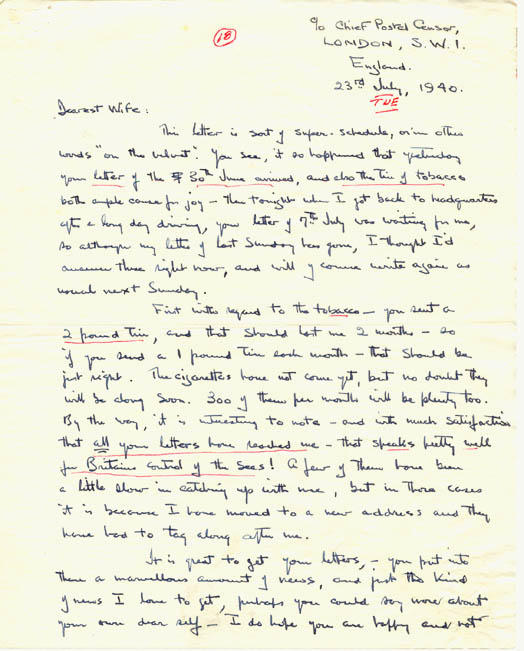 18
c/o Chief Postal Censor,
LONDON, S.W.1.
England.
23rd July, 1940.
TUE
Dearest Wife:
This letter is sort of super-schedule, or in other
words "on the velvet". You see, it so happened that yesterday
your letter of the 30th June arrived, and also the tin of tobacco
both ample cause for joy — then tonight when I got back to headquarters
after a long day driving, your letter of 7th July was waiting for me,
so although my letter of last Sunday has gone, I thought I'd
answer these right now, and will of course write again as
usual next Sunday.
First with regard to the tobacco — you sent a
2 pound tin, and that should last me 2 months — so
if you send a 1 pound tin each month — that should be
just right. The cigarettes have not come yet, but no doubt they
will be along soon. 300 of them per month will be plenty too.
By the way, it is interesting to note — and with much satisfaction
that all your letters have reached me — that speaks pretty well
for Britain's control of the seas! A few of them have been
a little slow in catching up with me, but in those cases
it is because I have moved to a new address and they
have had to tag along after me.
It is great to get your letters, — you put into
them a marvellous amount of news, and just the kind
of news I love to get, perhaps you could say more about
your own dear self — I do hope you are happy and not